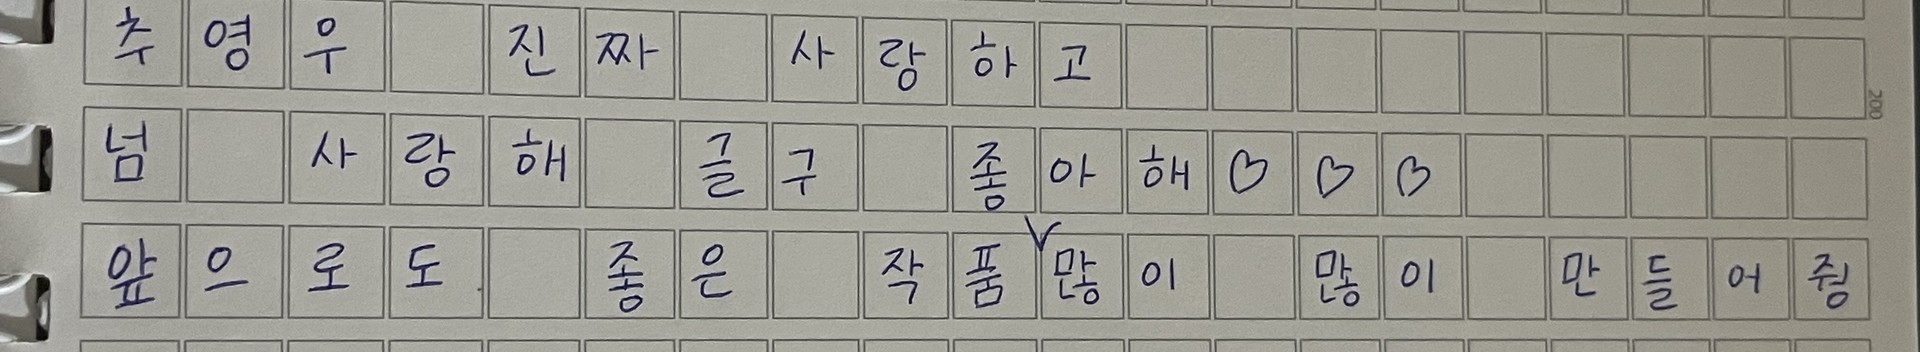 추영우 진짜 사랑하고
넘 사랑해 글구 좋아해♡♡♡
앞으로도 좋은 작품∨많이 많이 만들어줭
200